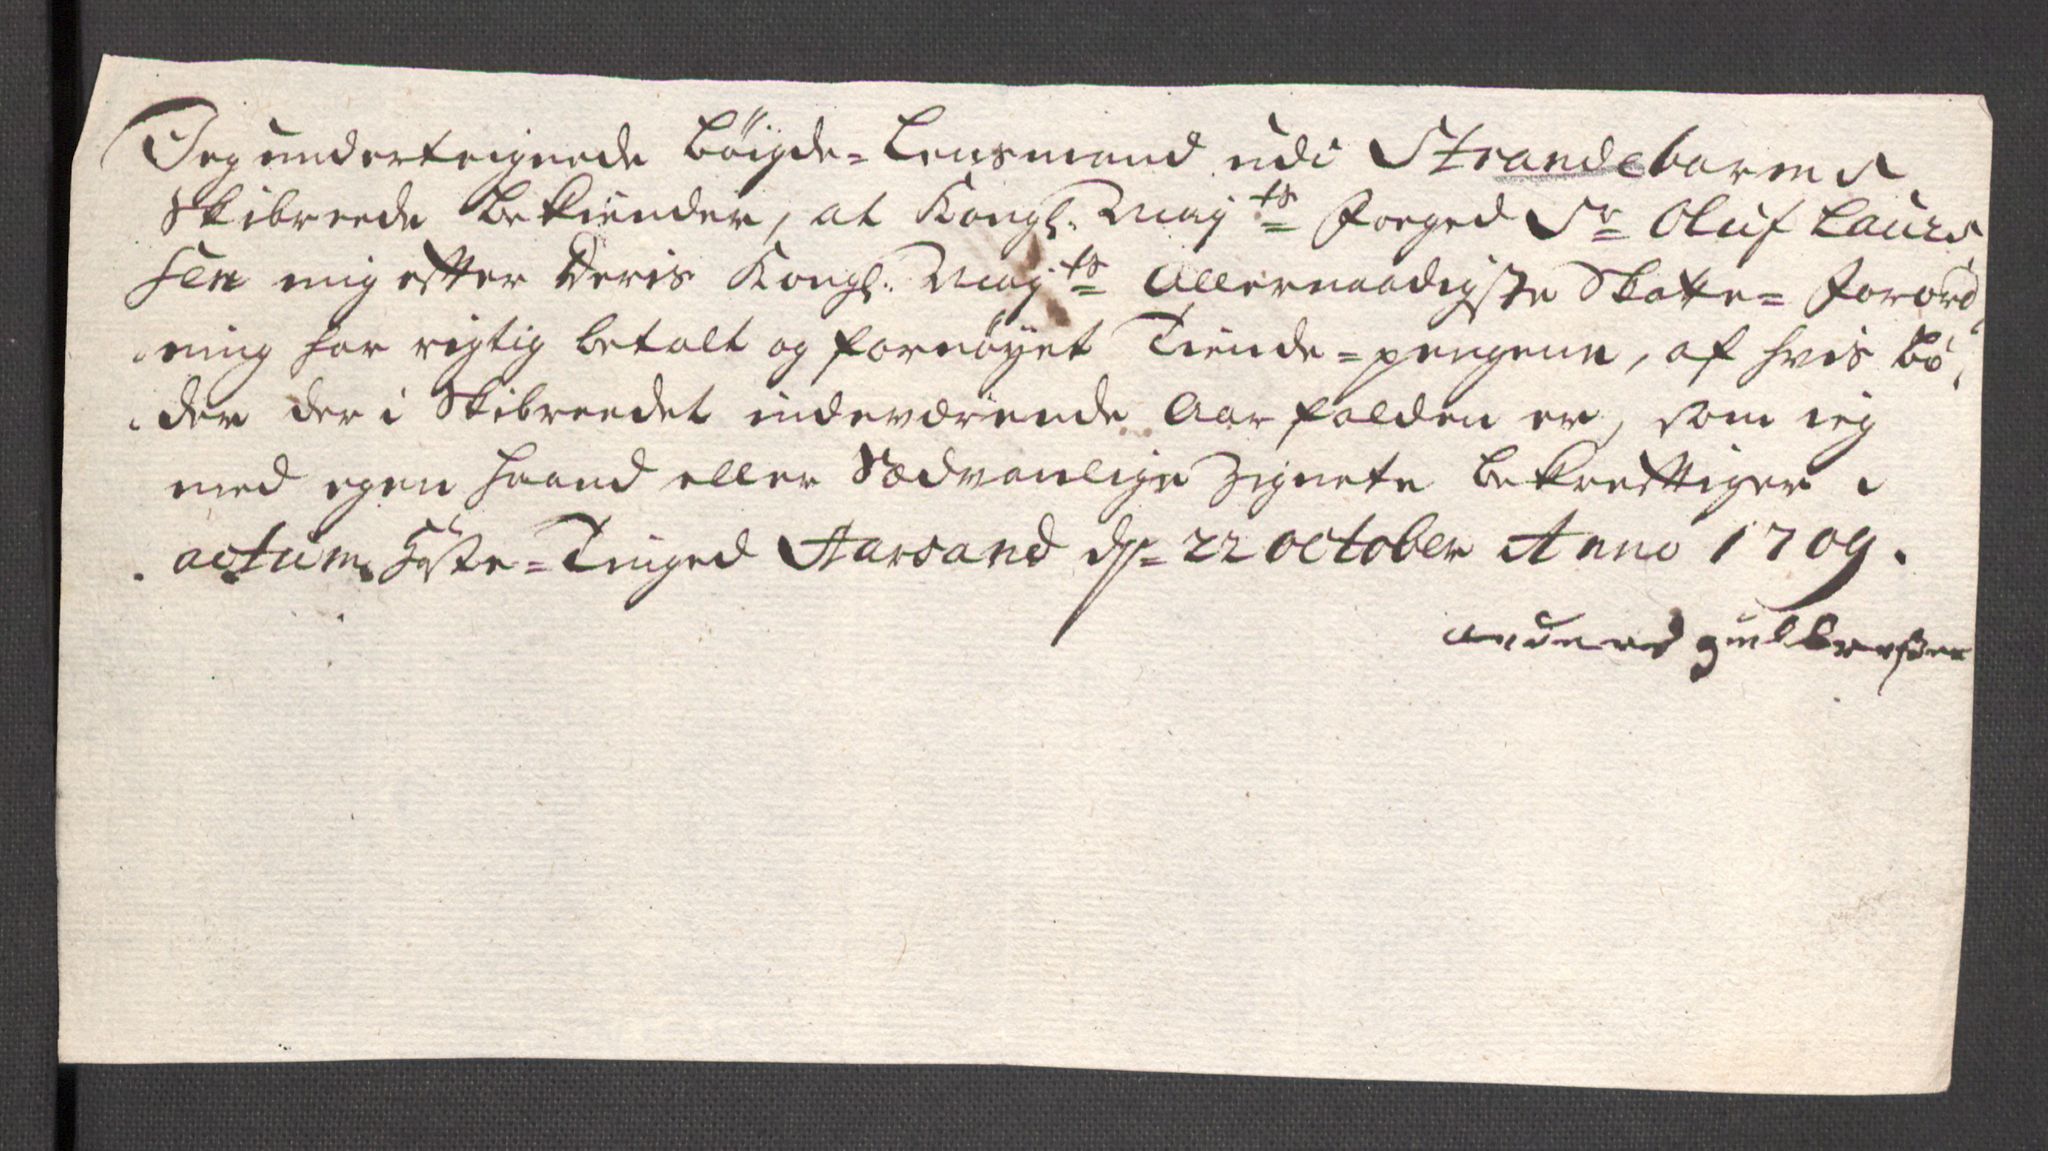 Jeg underteignede Böigde=Lensmand udi Strandebarms
Skibreede bekiender, at Kongl: May:ts Foeged Sr Oluf Laurs
sen mig efter Deris Kongl: May:ts Allernaadigste Skatte= Forord
ning har rigtig betalt og fornöyet Tiende=pengene, af hvis Bö
der der i Skibreedet indeværende Aar falden er, som ieg
med egen haand eller Sædvanlige Zignete bekreftiger
actum Höste=Tinged Aarsand ds 22 October Anno 1709.
anders gulbransen